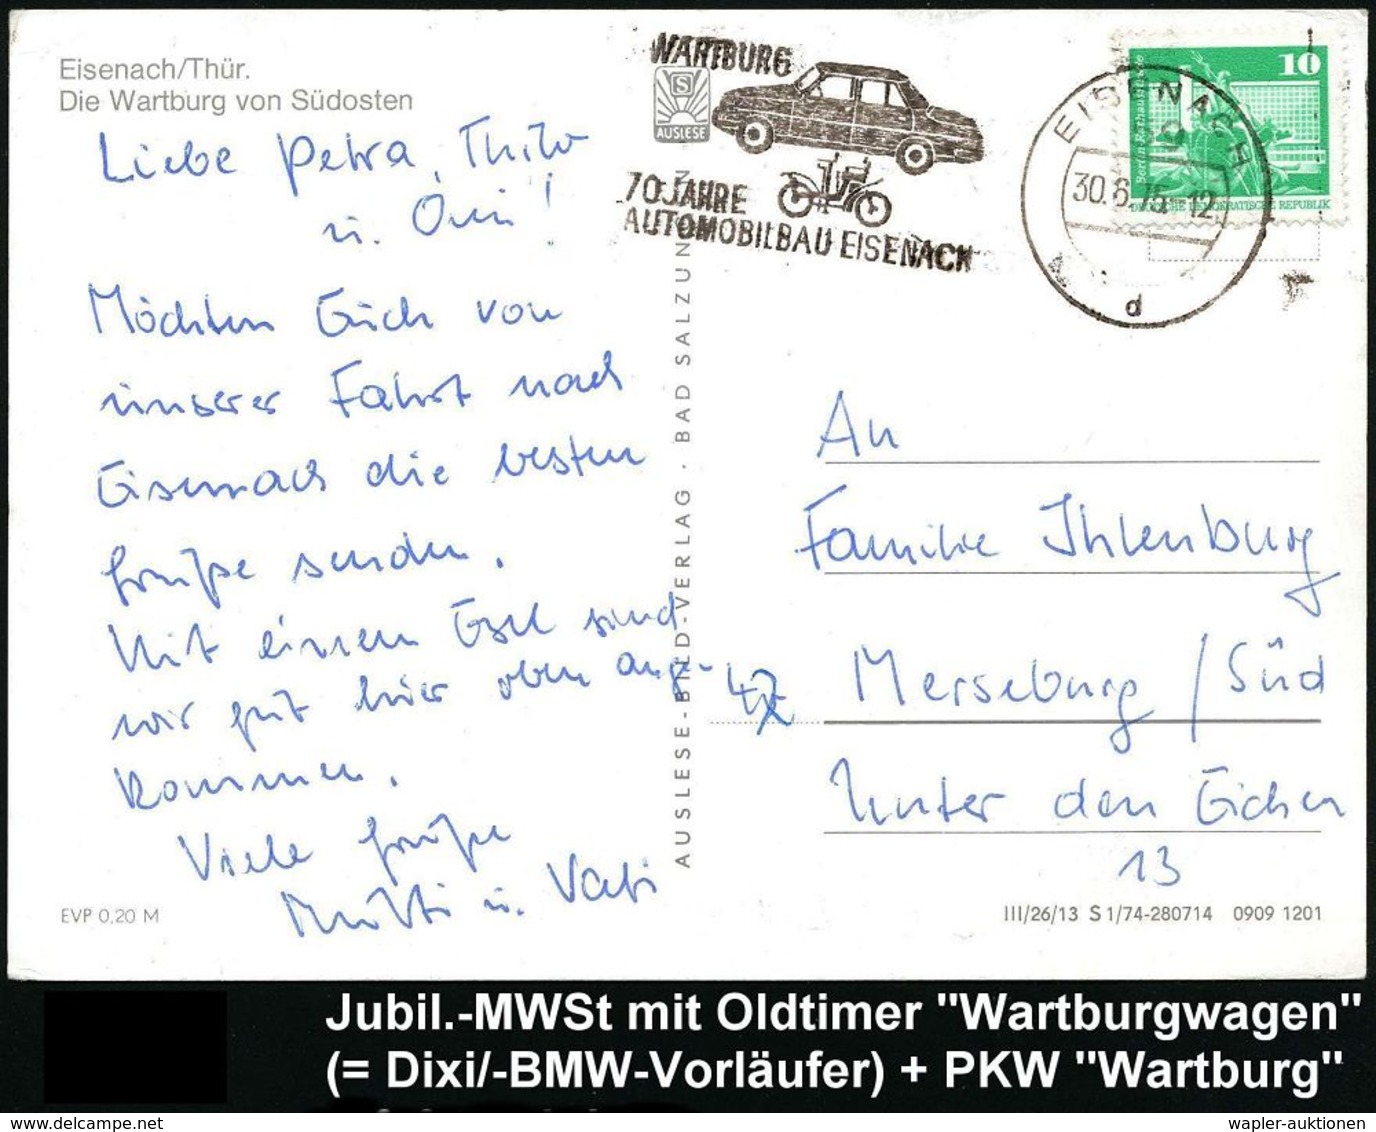 Eisenach/Thür.
Die Wartburg von Südosten
Liebe Petra, Thilo
u. Omi!
Möchten Euch von
unserer Fahrt nach
Eisenach die besten
Grüße senden.
Mit einem Esel sind
wir gut hier oben ange-
kommen.
Viele Grüße
Mutti u. Vati
EVP 0,20 M
AUSLESE-BILD-VERLAG · BAD SALZUNGEN
S
AUSLESE
WARTBURG
70 JAHRE
AUTOMOBILBAU EISENACH
EISENACH
30.6.75-12
d
10
Berlin Rathausstraße
DEUTSCHE DEMOKRATISCHE REPUBLIK
An
Familie Ihlenburg
42 Merseburg / Süd
Unter den Eichen
13
III/26/13 S 1/74-280714 0909 1201
Jubil.-MWSt mit Oldtimer "Wartburgwagen"
(= Dixi/-BMW-Vorläufer) + PKW "Wartburg"
wapler-auktionen